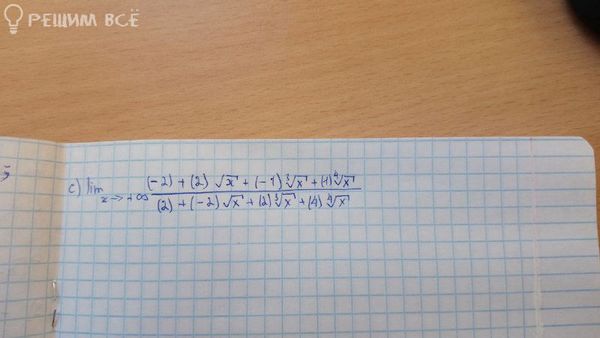 РЕШИМ ВСЁ
c) lim x→+∞ (-2) + (2) √x + (-1) ∛x + (1) ∜x
(2) + (-2) √x + (2) ∛x + (4) ∜x